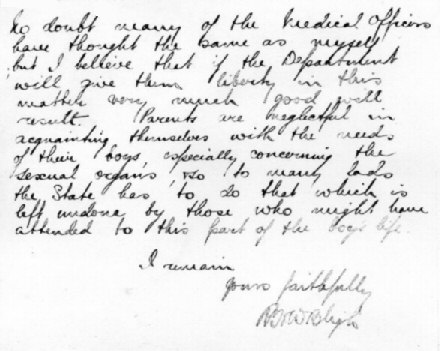 No doubt many of the Medical Officers
have thought the same as myself
but I believe that if the Department
will give them liberty in this
matter very much good will
result. Parents are neglectful in
acquainting themselves with the needs
of their boys, especially concerning the
sexual organs, so to many lads
the State has to do that which is
left undone by those who might have
attended to this part of the boys life.
I remain
Yours faithfully